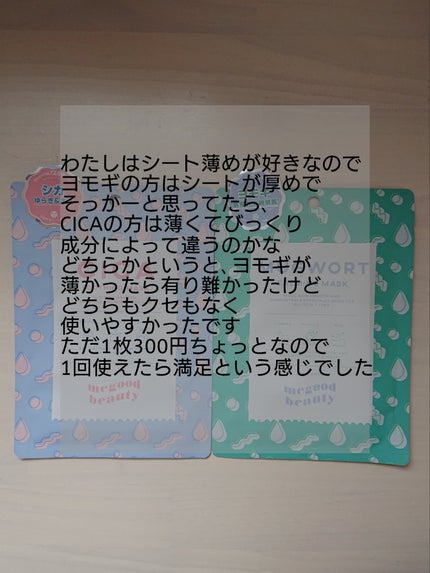 わたしはシート薄めが好きなので
ヨモギの方はシートが厚めで
そっかーと思ってたら、
CICAの方は薄くてびっくり
成分によって違うのかな
どちらかというと、ヨモギが
薄かったら有り難かったけど
どちらもクセもなく
使いやすかったです
ただ1枚300円ちょっとなので
1回使えたら満足という感じでした
シカ
ヨモギ
WORT
MASK
mcgood
beauty
mcgood
beauty